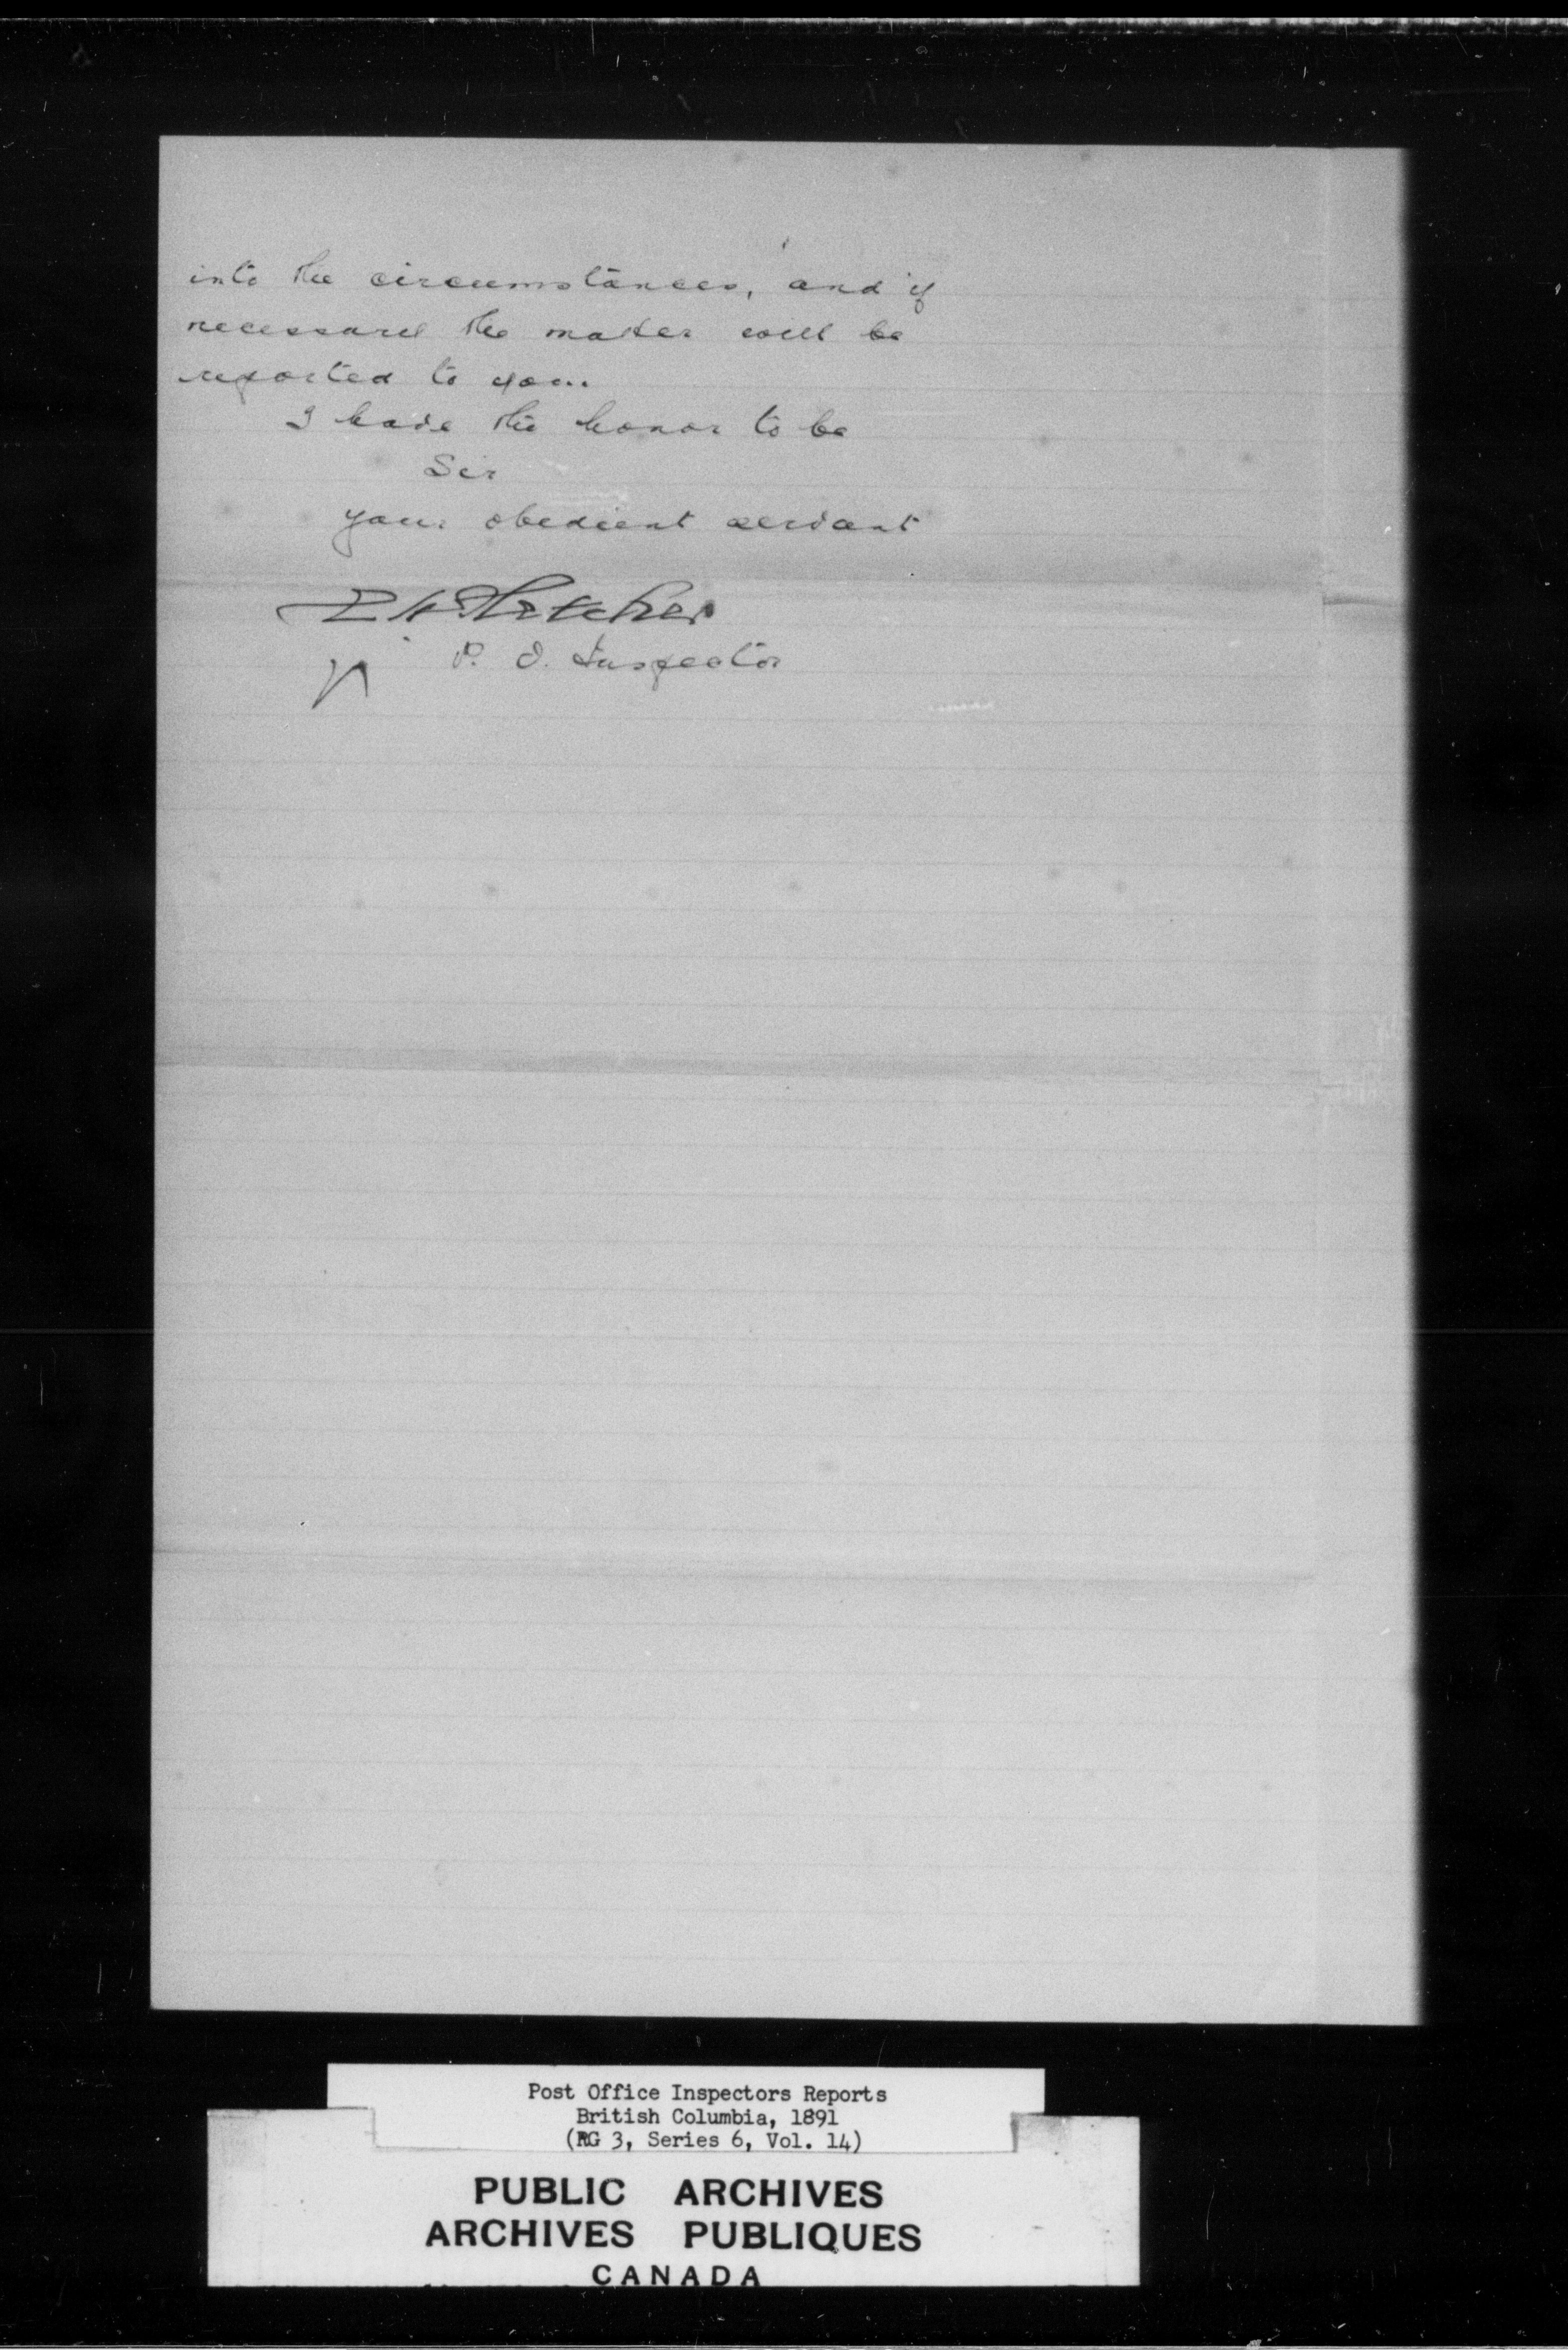 into the circumstances, and if
necessary the matter will be
reported to you.
I have the honor to be
Sir
your obedient servant
Fletcher
P. O. Inspector
Post Office Inspectors Reports
British Columbia, 1891
(RG 3, Series 6, Vol. 14)
PUBLIC ARCHIVES
ARCHIVES PUBLIQUES
CANADA